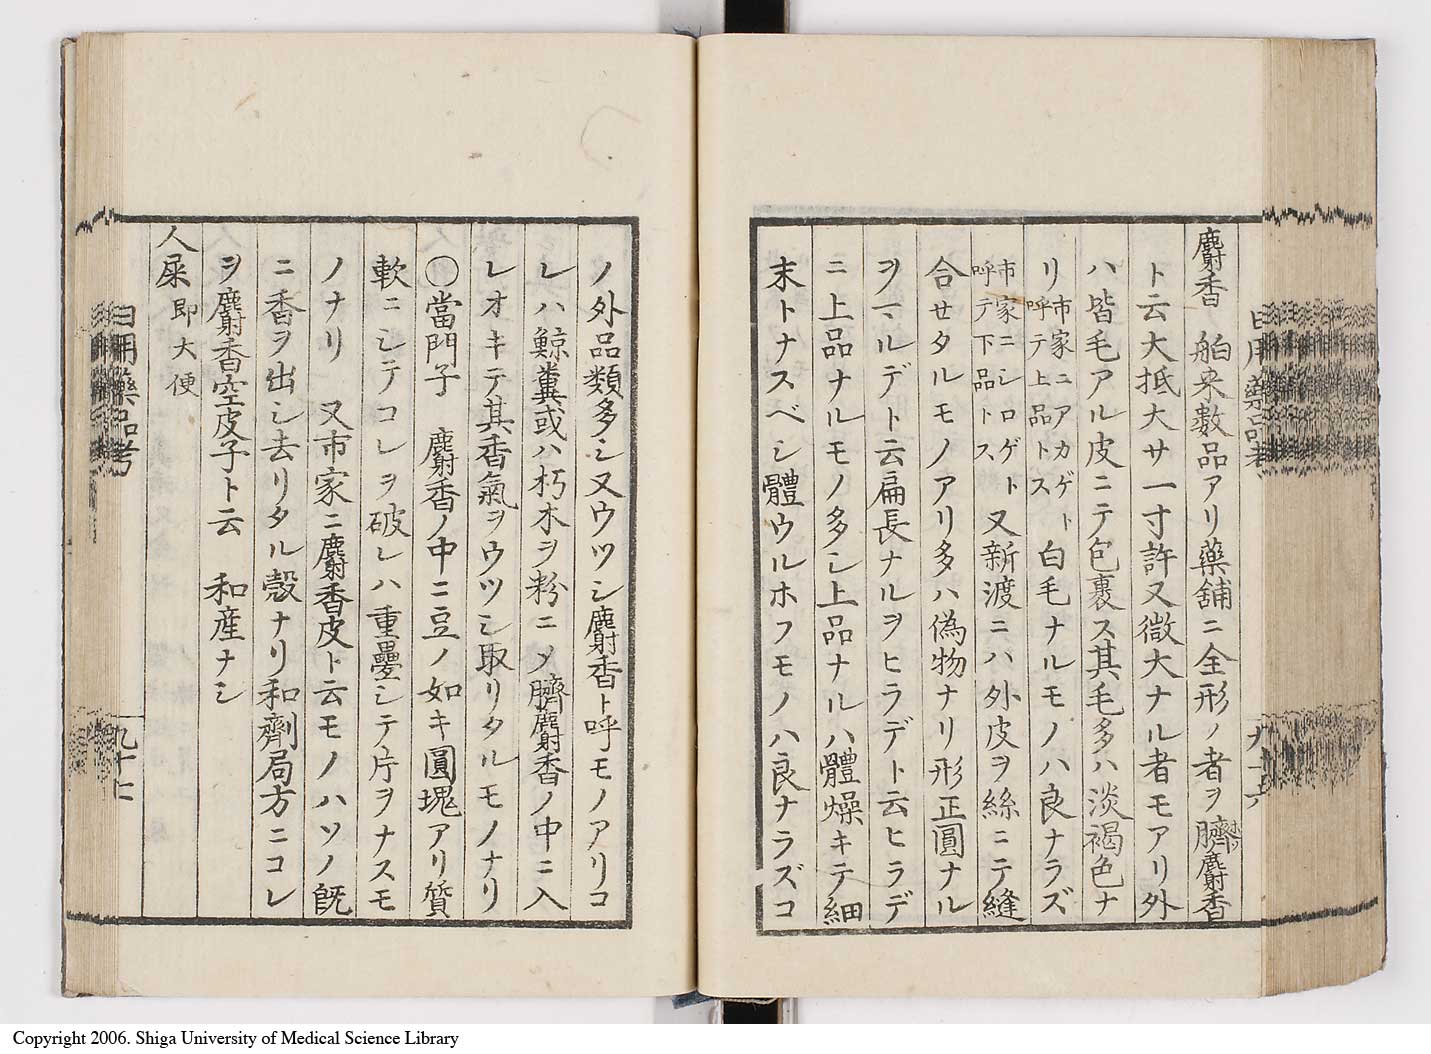 麝香　舶来數品アリ藥舗ニ全形ノ者ヲ臍麝香
ト云大抵大サ一寸許又微大ナル者モアリ外
ハ皆毛アル皮ニテ包裹ス其毛多ハ淡褐色ナ
リ市家ニアカゲト
呼テ上品トス白毛ナルモノハ良ナラズ
市家ニシロゲト
呼テ下品トス又新渡ニハ外皮ヲ絲ニテ縫
合セタルモノアリ多ハ偽物ナリ形正圓ナル
ヲマルデト云扁長ナルヲヒラデト云ヒラデ
ニ上品ナルモノ多シ上品ナルハ體燥キテ細
末トナスベシ體ウルホフモノハ良ナラズコ
ノ外品類多シ又ウツシ麝香ト呼モノアリコ
レハ鯨糞或ハ朽木ヲ粉ニメ臍麝香ノ中ニ入
レオキテ其香氣ヲウツシ取リタルモノナリ
〇當門子　麝香ノ中ニ豆ノ如キ圓塊アリ質
軟ニシテコレヲ破レハ重疊シテ片ヲナスモ
ノナリ　又市家ニ麝香皮ト云モノハソノ既
ニ香ヲ出シ去リタル殻ナリ和劑局方ニコレ
ヲ麝香空皮子ト云　和産ナシ
人屎　即大便
日用藥品考
九十七
Copyright 2006. Shiga University of Medical Science Library